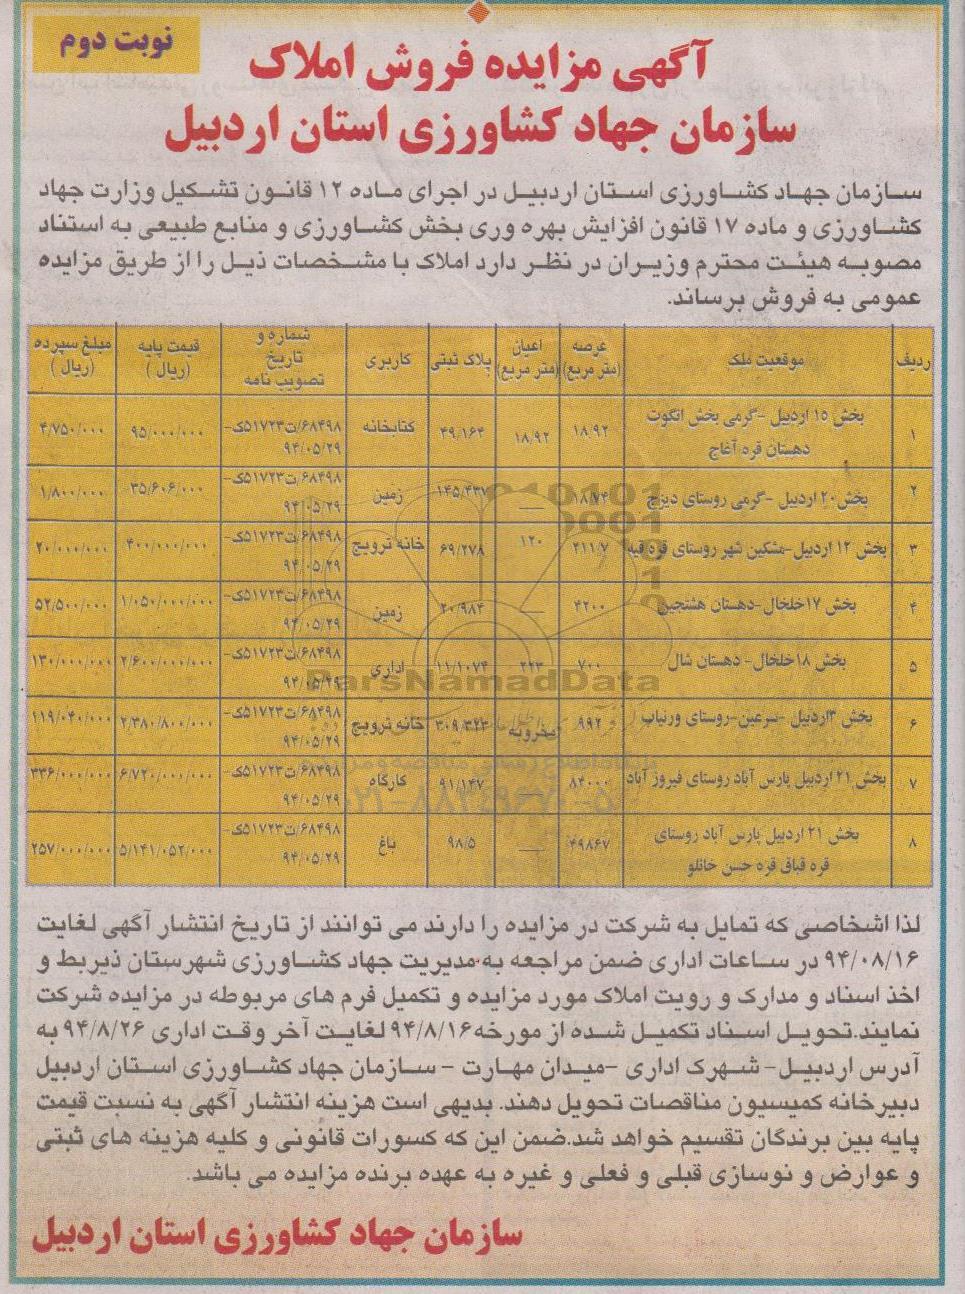 نوبت دوم
آگهی مزایده فروش املاک
سازمان جهاد کشاورزی استان اردبیل
سازمان جهاد کشاورزی استان اردبیل در اجرای ماده ۱۲ قانون تشکیل وزارت جهاد
کشاورزی و ماده ۱۷ قانون افزایش بهره وری بخش کشاورزی و منابع طبیعی به استناد
مصوبه هیئت محترم وزیران در نظر دارد املاک با مشخصات ذیل را از طریق مزایده
عمومی به فروش برساند.
ردیف موقعیت ملک عرصه (متر مربع) اعیان (متر مربع) پلاک ثبتی کاربری شماره و تاریخ تصویب نامه قیمت پایه (ریال) مبلغ سپرده (ریال)
۱ بخش ۱۵ اردبیل -گرمی بخش انگوت دهستان قره آغاج ۱۸.۹۲ ۱۸.۹۲ ۴۹/۱۶۴ کتابخانه ۶۸۴۹۸/ت۵۱۷۲۳ک- ۹۴/۰۵/۲۹ ۹۵/۰۰۰/۰۰۰ ۴/۷۵۰/۰۰۰
۲ بخش۲۰ اردبیل -گرمی روستای دیزج ۱۴۵/۴۳۷ زمین ۶۸۴۹۸/ت۵۱۷۲۳ک- ۹۴/۰۵/۲۹ ۳۵/۶۰۶/۰۰۰ ۱/۸۰۰/۰۰۰
۳ بخش ۱۲ اردبیل-مشکین شهر روستای قره قیه ۲۱۱.۷ ۱۲۰ ۶۹/۲۷۸ خانه ترویج ۶۸۴۹۸/ت۵۱۷۲۳ک- ۹۴/۰۵/۲۹ ۴۰۰/۰۰۰/۰۰۰ ۲۰/۰۰۰/۰۰۰
۴ بخش ۱۷خلخال-دهستان هشتجین ۴۲۰۰ — ۲۰/۹۸۴ زمین ۶۸۴۹۸/ت۵۱۷۲۳ک- ۹۴/۰۵/۲۹ ۱/۰۵۰/۰۰۰/۰۰۰ ۵۲/۵۰۰/۰۰۰
۵ بخش ۱۸خلخال- دهستان شال ۷۰۰ ۲۲۳ ۱۱/۱۰۷۴ اداری ۶۸۴۹۸/ت۵۱۷۲۳ک- ۹۴/۰۵/۲۹ ۲/۶۰۰/۰۰۰/۰۰۰ ۱۳۰/۰۰۰/۰۰۰
۶ بخش ۳اردبیل -سرعین-روستای ورنیاب ۹۹۲ مخروبه ۳۰۹/۳۲۳ خانه ترویج ۶۸۴۹۸/ت۵۱۷۲۳ک- ۹۴/۰۵/۲۹ ۲/۳۸۰/۸۰۰/۰۰۰ ۱۱۹/۰۴۰/۰۰۰
۷ بخش ۲۱ اردبیل پارس آباد روستای فیروز آباد ۸۴۰۰۰ ۹۱/۱۴۷ کارگاه ۶۸۴۹۸/ت۵۱۷۲۳ک- ۹۴/۰۵/۲۹ ۶/۷۲۰/۰۰۰/۰۰۰ ۳۳۶/۰۰۰/۰۰۰
۸ بخش ۲۱ اردبیل پارس آباد روستای قره قباق قره حسن خانلو ۴۹۸۶۷ — ۹۸/۵ باغ ۶۸۴۹۸/ت۵۱۷۲۳ک- ۹۴/۰۵/۲۹ ۵/۱۴۱/۰۵۲/۰۰۰ ۲۵۷/۰۰۰/۰۰۰
ParsNamadData
لذا اشخاصی که تمایل به شرکت در مزایده را دارند می توانند از تاریخ انتشار آگهی لغایت
۹۴/۰۸/۱۶ در ساعات اداری ضمن مراجعه به مدیریت جهاد کشاورزی شهرستان ذیربط و
اخذ اسناد و مدارک و رویت املاک مورد مزایده و تکمیل فرم های مربوطه در مزایده شرکت
نمایند.تحویل اسناد تکمیل شده از مورخه۹۴/۸/۱۶ لغایت آخر وقت اداری ۹۴/۸/۲۶ به
آدرس اردبیل- شهرک اداری -میدان مهارت - سازمان جهاد کشاورزی استان اردبیل
دبیرخانه کمیسیون مناقصات تحویل دهند. بدیهی است هزینه انتشار آگهی به نسبت قیمت
پایه بین برندگان تقسیم خواهد شد.ضمن این که کسورات قانونی و کلیه هزینه های ثبتی
و عوارض و نوسازی قبلی و فعلی و غیره به عهده برنده مزایده می باشد.
سازمان جهاد کشاورزی استان اردبیل